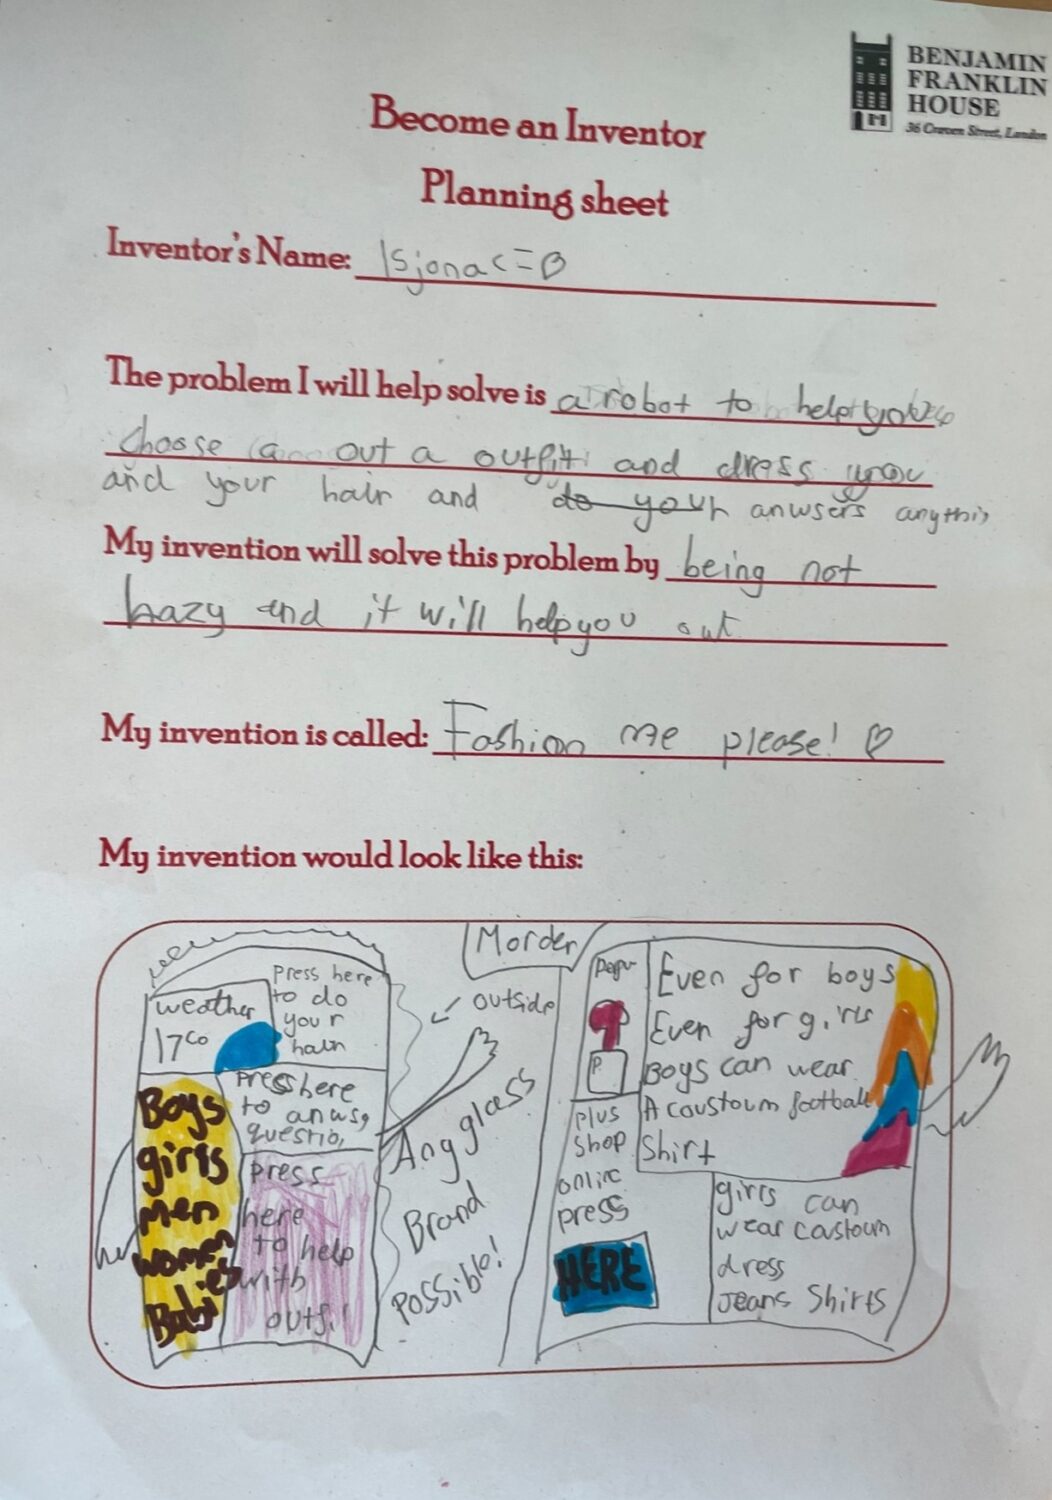 BENJAMIN
FRANKLIN
HOUSE
36 Craven Street, London
Become an Inventor
Planning sheet
Inventor's Name: Isjona <=B
The problem I will help solve is a robot to help
choose out a outfit and dress you
and your hair and do your anwsers anythin
My invention will solve this problem by being not
hazy and it will help you out
My invention is called: Fashion me please! ♡
My invention would look like this:
weather
17co
Press here
to do
your
hair
Press here
to anwsq
questio
Boys
girls
Men
women
Babies
press
here
to help
with
outfi
Morder
← outside
Any glass
Brand
possible!
P.
plus
shop
online
press
HERE
Even for boys
Even for girls
Boys can wear
A coustoum football
Shirt
girls can
wear coustoum
dress
Jeans Shirts